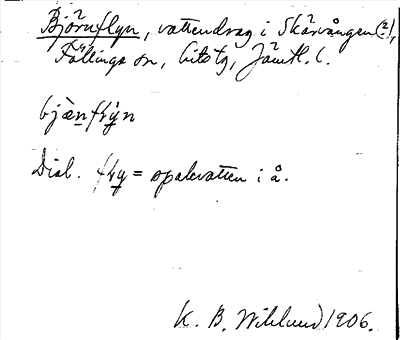 Björnflyn, vattendrag i Skärvången (2),
Föllinge sn, Jämtl. l.
bjæ̀nflỳn
Dial. fly = spakvatten i å.
K. B. Wiklund 1906.